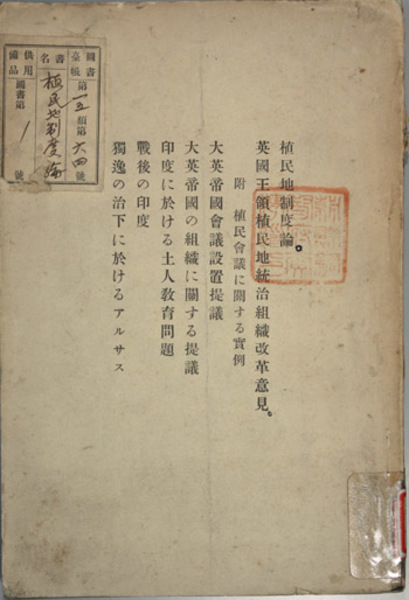 植民地制度論。
英國王領植民地統治組織改革意見。
附 植民會議に關する實例
大英帝國會議設置提議
大英帝國の組織に關する提議
印度に於ける土人敎育問題
戰後の印度
獨逸の治下に於けるアルサス
圖書臺帳 第一五類第六四號
書名 植民地制度論
供用備品 圖書第1號